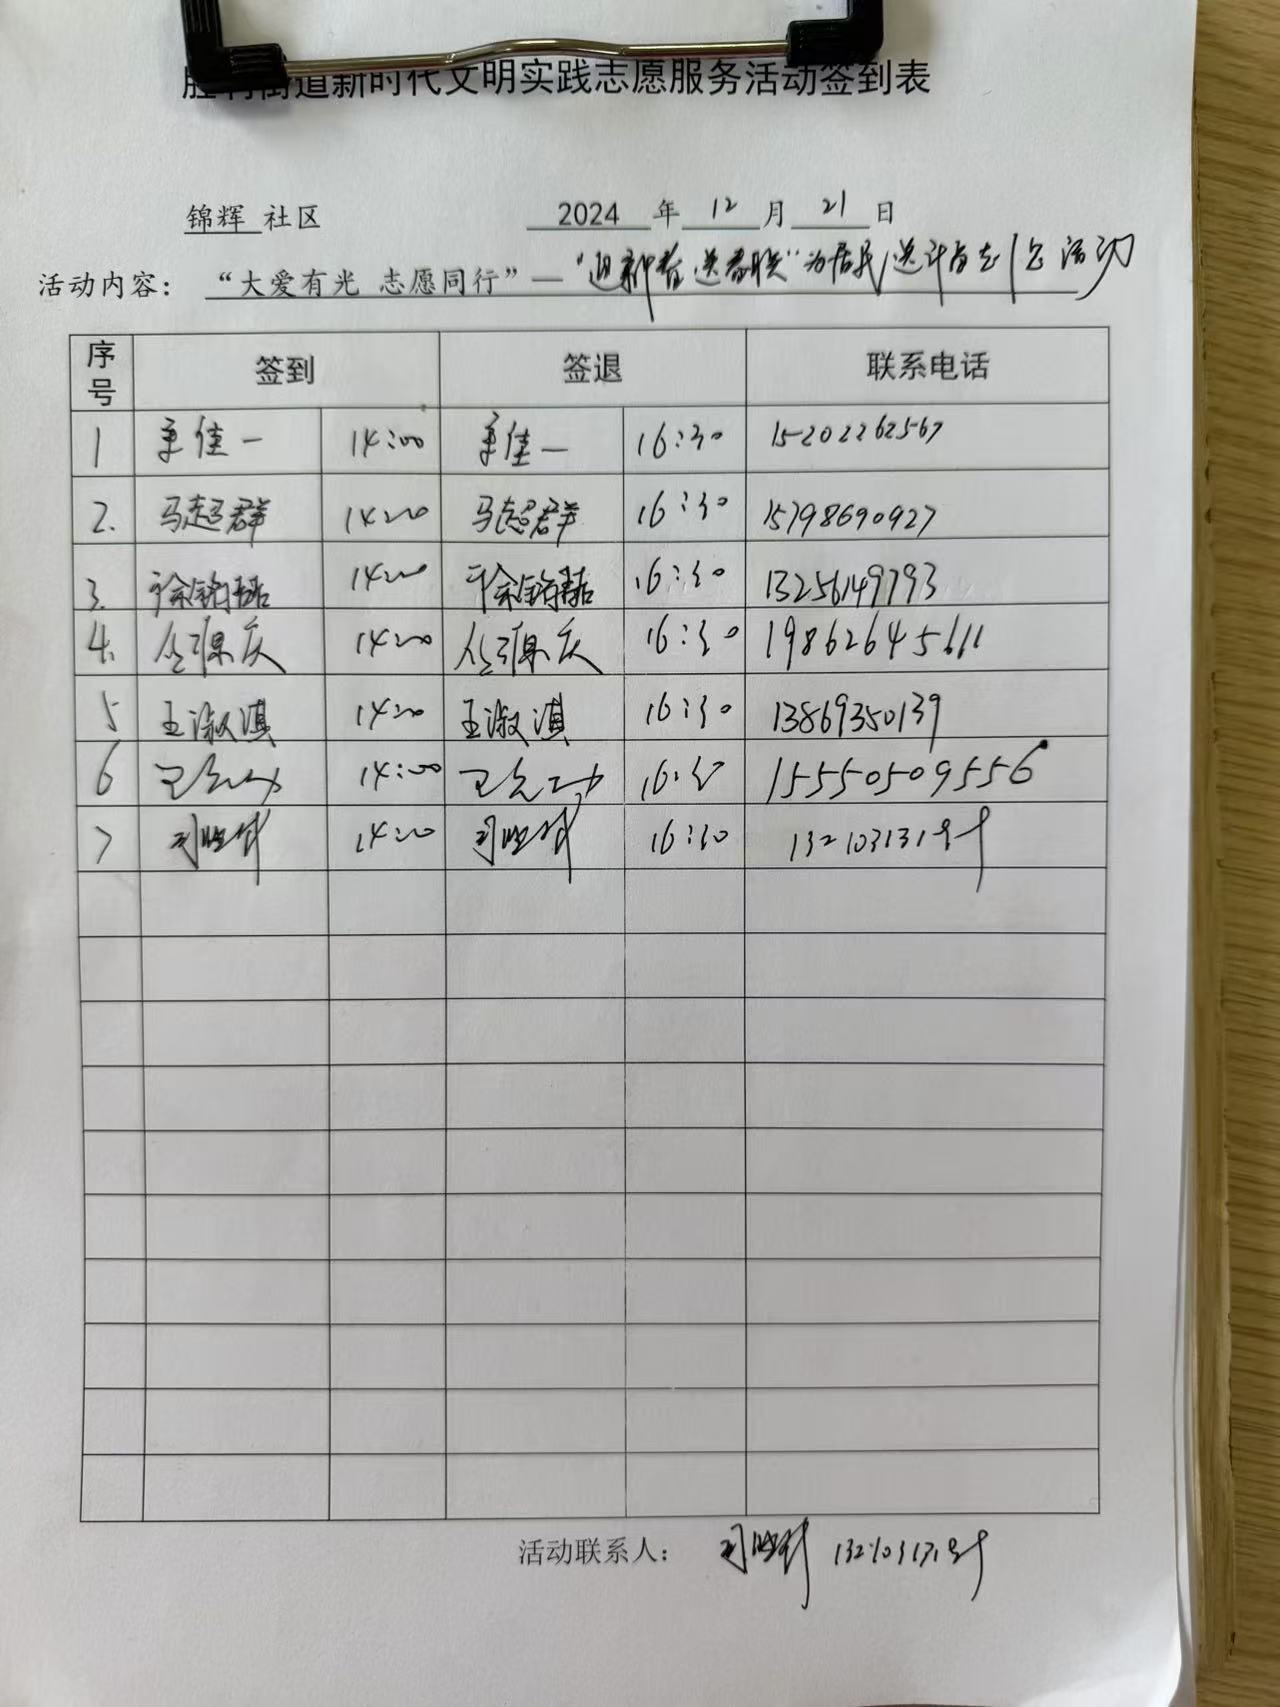 胜利街道新时代文明实践志愿服务活动签到表
锦辉 社区 2024 年 12 月 21 日
活动内容： “大爱有光 志愿同行”— “迎新春 送春联”为居民送 活动
序号 签到 签退 联系电话
1 佳一 14:00 佳一 16:30 15202262567
2. 马超群 14:00 马超群 16:30 15798690927
3. 徐铭喆 14:00 徐铭喆 16:30 13256149793
4. 丛源庆 14:00 丛源庆 16:30 19862645611
5 王淑淇 14:00 王淑淇 16:30 13869350139
6 14:00 16:30 15550509556
7 14:00 16:30
活动联系人：